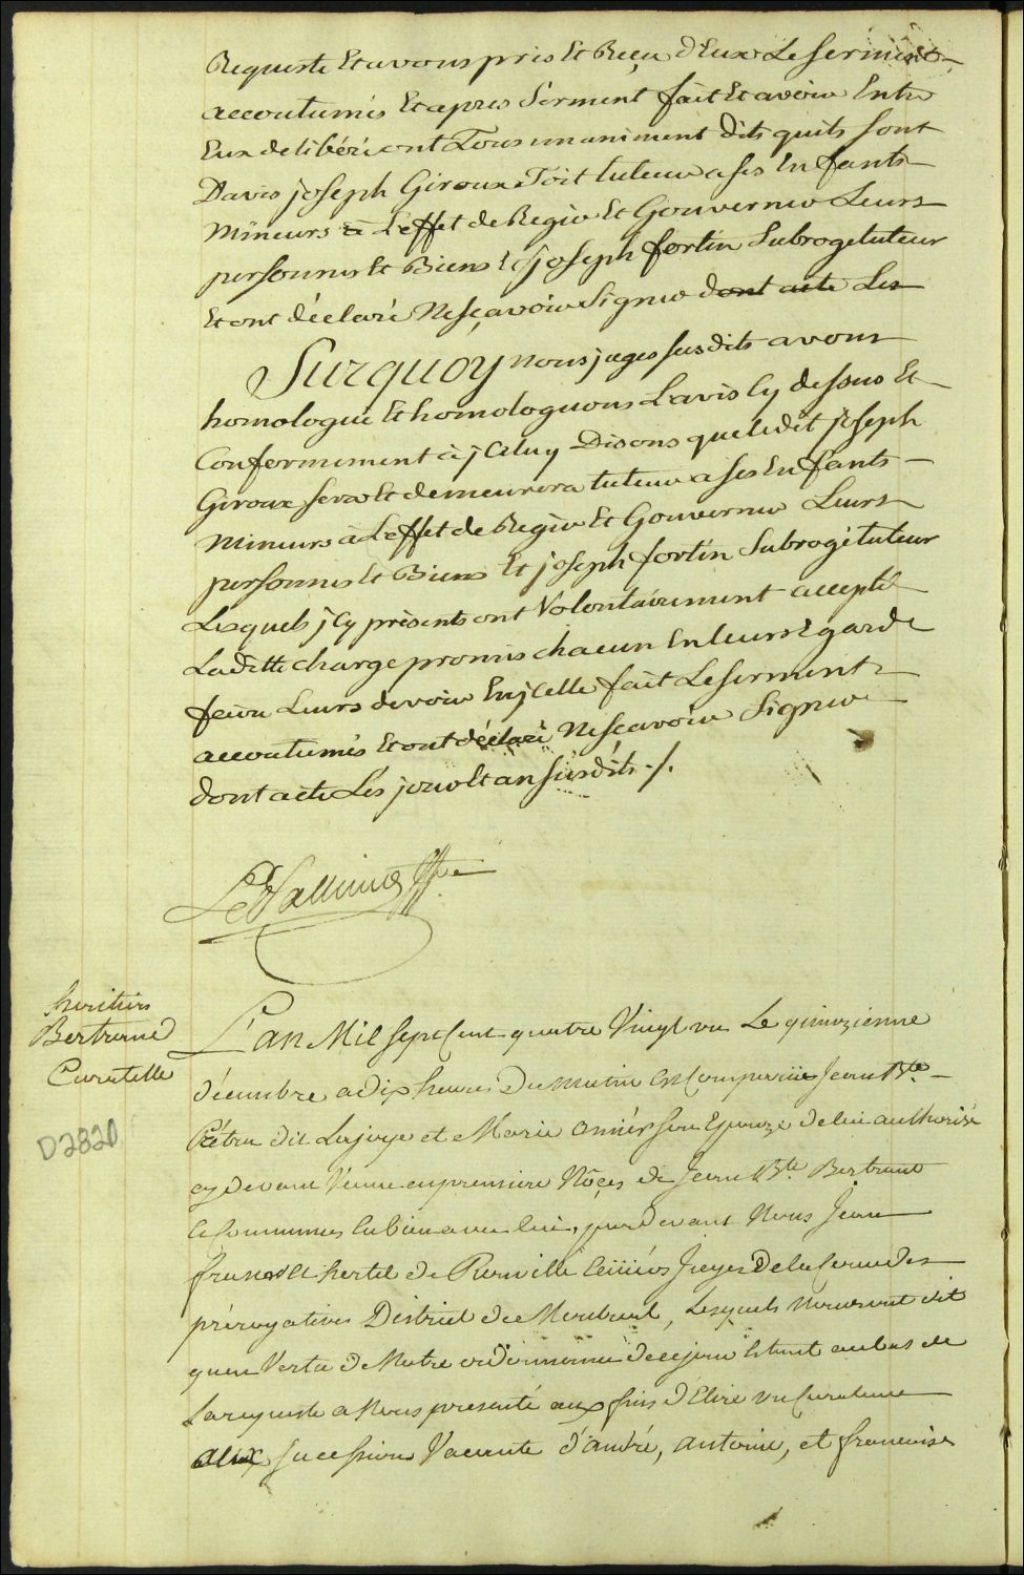 Requeste Et avons pris Et Reçu d'Eux Le serment
accoutumés Et apres Serment fait Et avoir Entre
Eux deliberé ont Tous unaniment dits quils sont
Davis joseph Giroux Soit tuteur a ses Enfants
Mineurs à L'effet de Regir Et Gouverner Leurs
personnes Et Biens Et joseph fortin Subrogetuteur
Et ont déclaré Nesçavoir Signer dont acte Les
Surquoy nous juges susdits avons
homologué Et homologuons L'avis Cy dessus Et
Conformement à jCeluy Disons que ledit joseph
Giroux sera Et demeurera tuteur a ses Enfants
Mineurs à L'effet de Regir Et Gouverner Leurs
personnes Et Biens Et joseph fortin Subrogétuteur
Lesquels jCy présents ont Volontairement accepté
Laditte charge promis chacun En leurs Egarde
faire Leurs devoir En jCelle fait Le serment
accoutumés Et ont déclaré Nescavoir Signer
dont acte Lés jour Et an susdits ./.
heritiers
Bertrand
Curatelle
D2820
L'an Mil Sept Cent quatre Vingt un Le quinzienne
décembre a dix heures Du matin Est Comparüe Jean Bte
Pétru dit Lajoye et Marie amiér son Epouze de lui authorisé
cy devant Veuve en premiere Nôçes de Jean Bte Bertrand
Commune En bien avec lui, par devant Nous Jean
francois hertel de Rouville Ecuiïers Juge De la Cour des
prérogatives District de Montreal, Lesquels Nous ont dit
quen Vertu de Notre ordonnance de ce jour Etant au bas de
La requeste a Nous presenté aux fins d'Elire un Curateur
aux sucession Vacante d'andré, antoine, et francoise